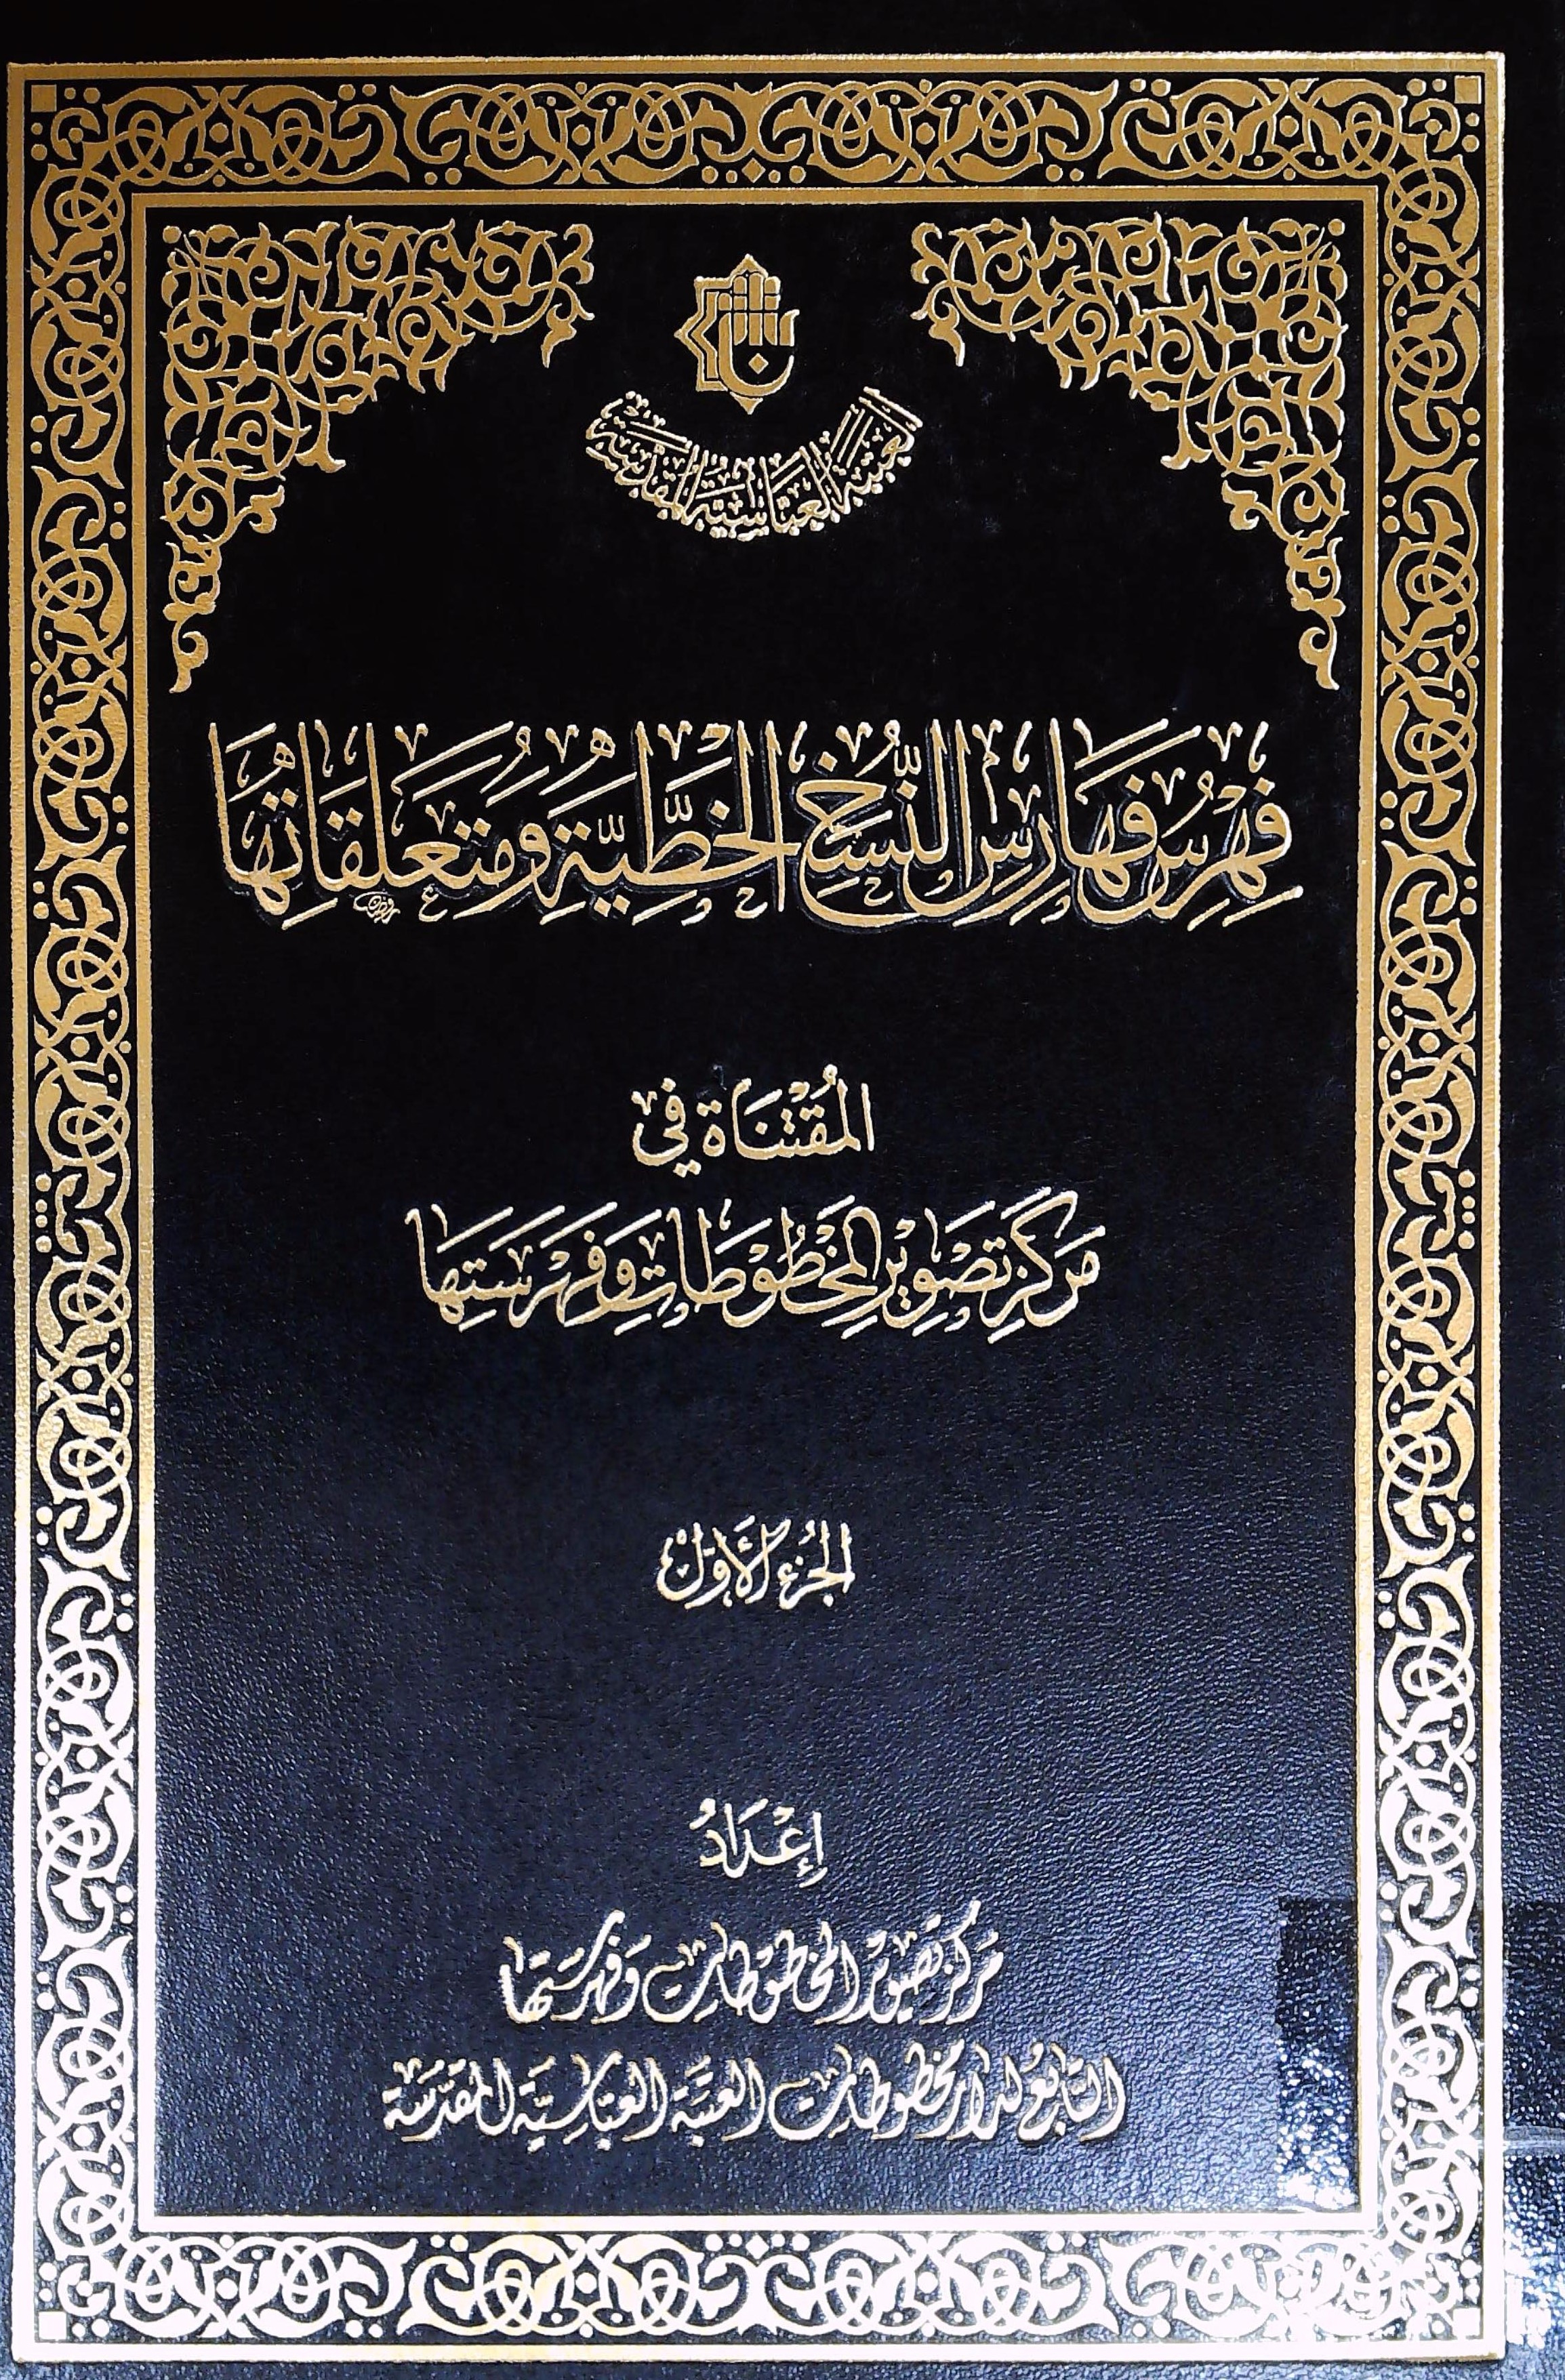 العتبة العباسية المقدسة
فِهْرِسُ فَهَارِسِ النُّسَخِ الخَطِّيَّةِ وَمُتَعَلَقَاتِهَا
المُقْتَنَاة في
مَركَزِ تَصْوِيرِ المَخْطُوطَاتِ وَفَهْرَسَتِهَا
الجُزءُ الأَوّل
إِعْدَادُ
مَركَز تَصوير المَخطوطات وَفهرستها
التابع لدار مخطوطات العتبة العباسية المقدسة